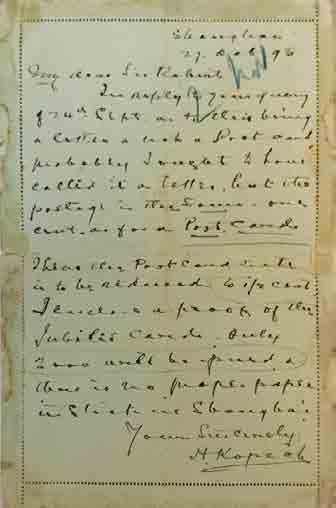 Shanghai
27 Oct 93
My dear Sir Robert
In reply to your query
of 24th Sept as to this being
a letter or a Post Card
probably I ought to have
called it a letter, but the
postage is the same - one
cent - as for a Post Card.
the Post Card rate
is to be reduced to ½ cent
I enclose a proof of the
Jubilee Cards. Only
2000 will be printed as
there is no proper paper
in Stock in Shanghai
Yours Sincerely
H. Kopsch